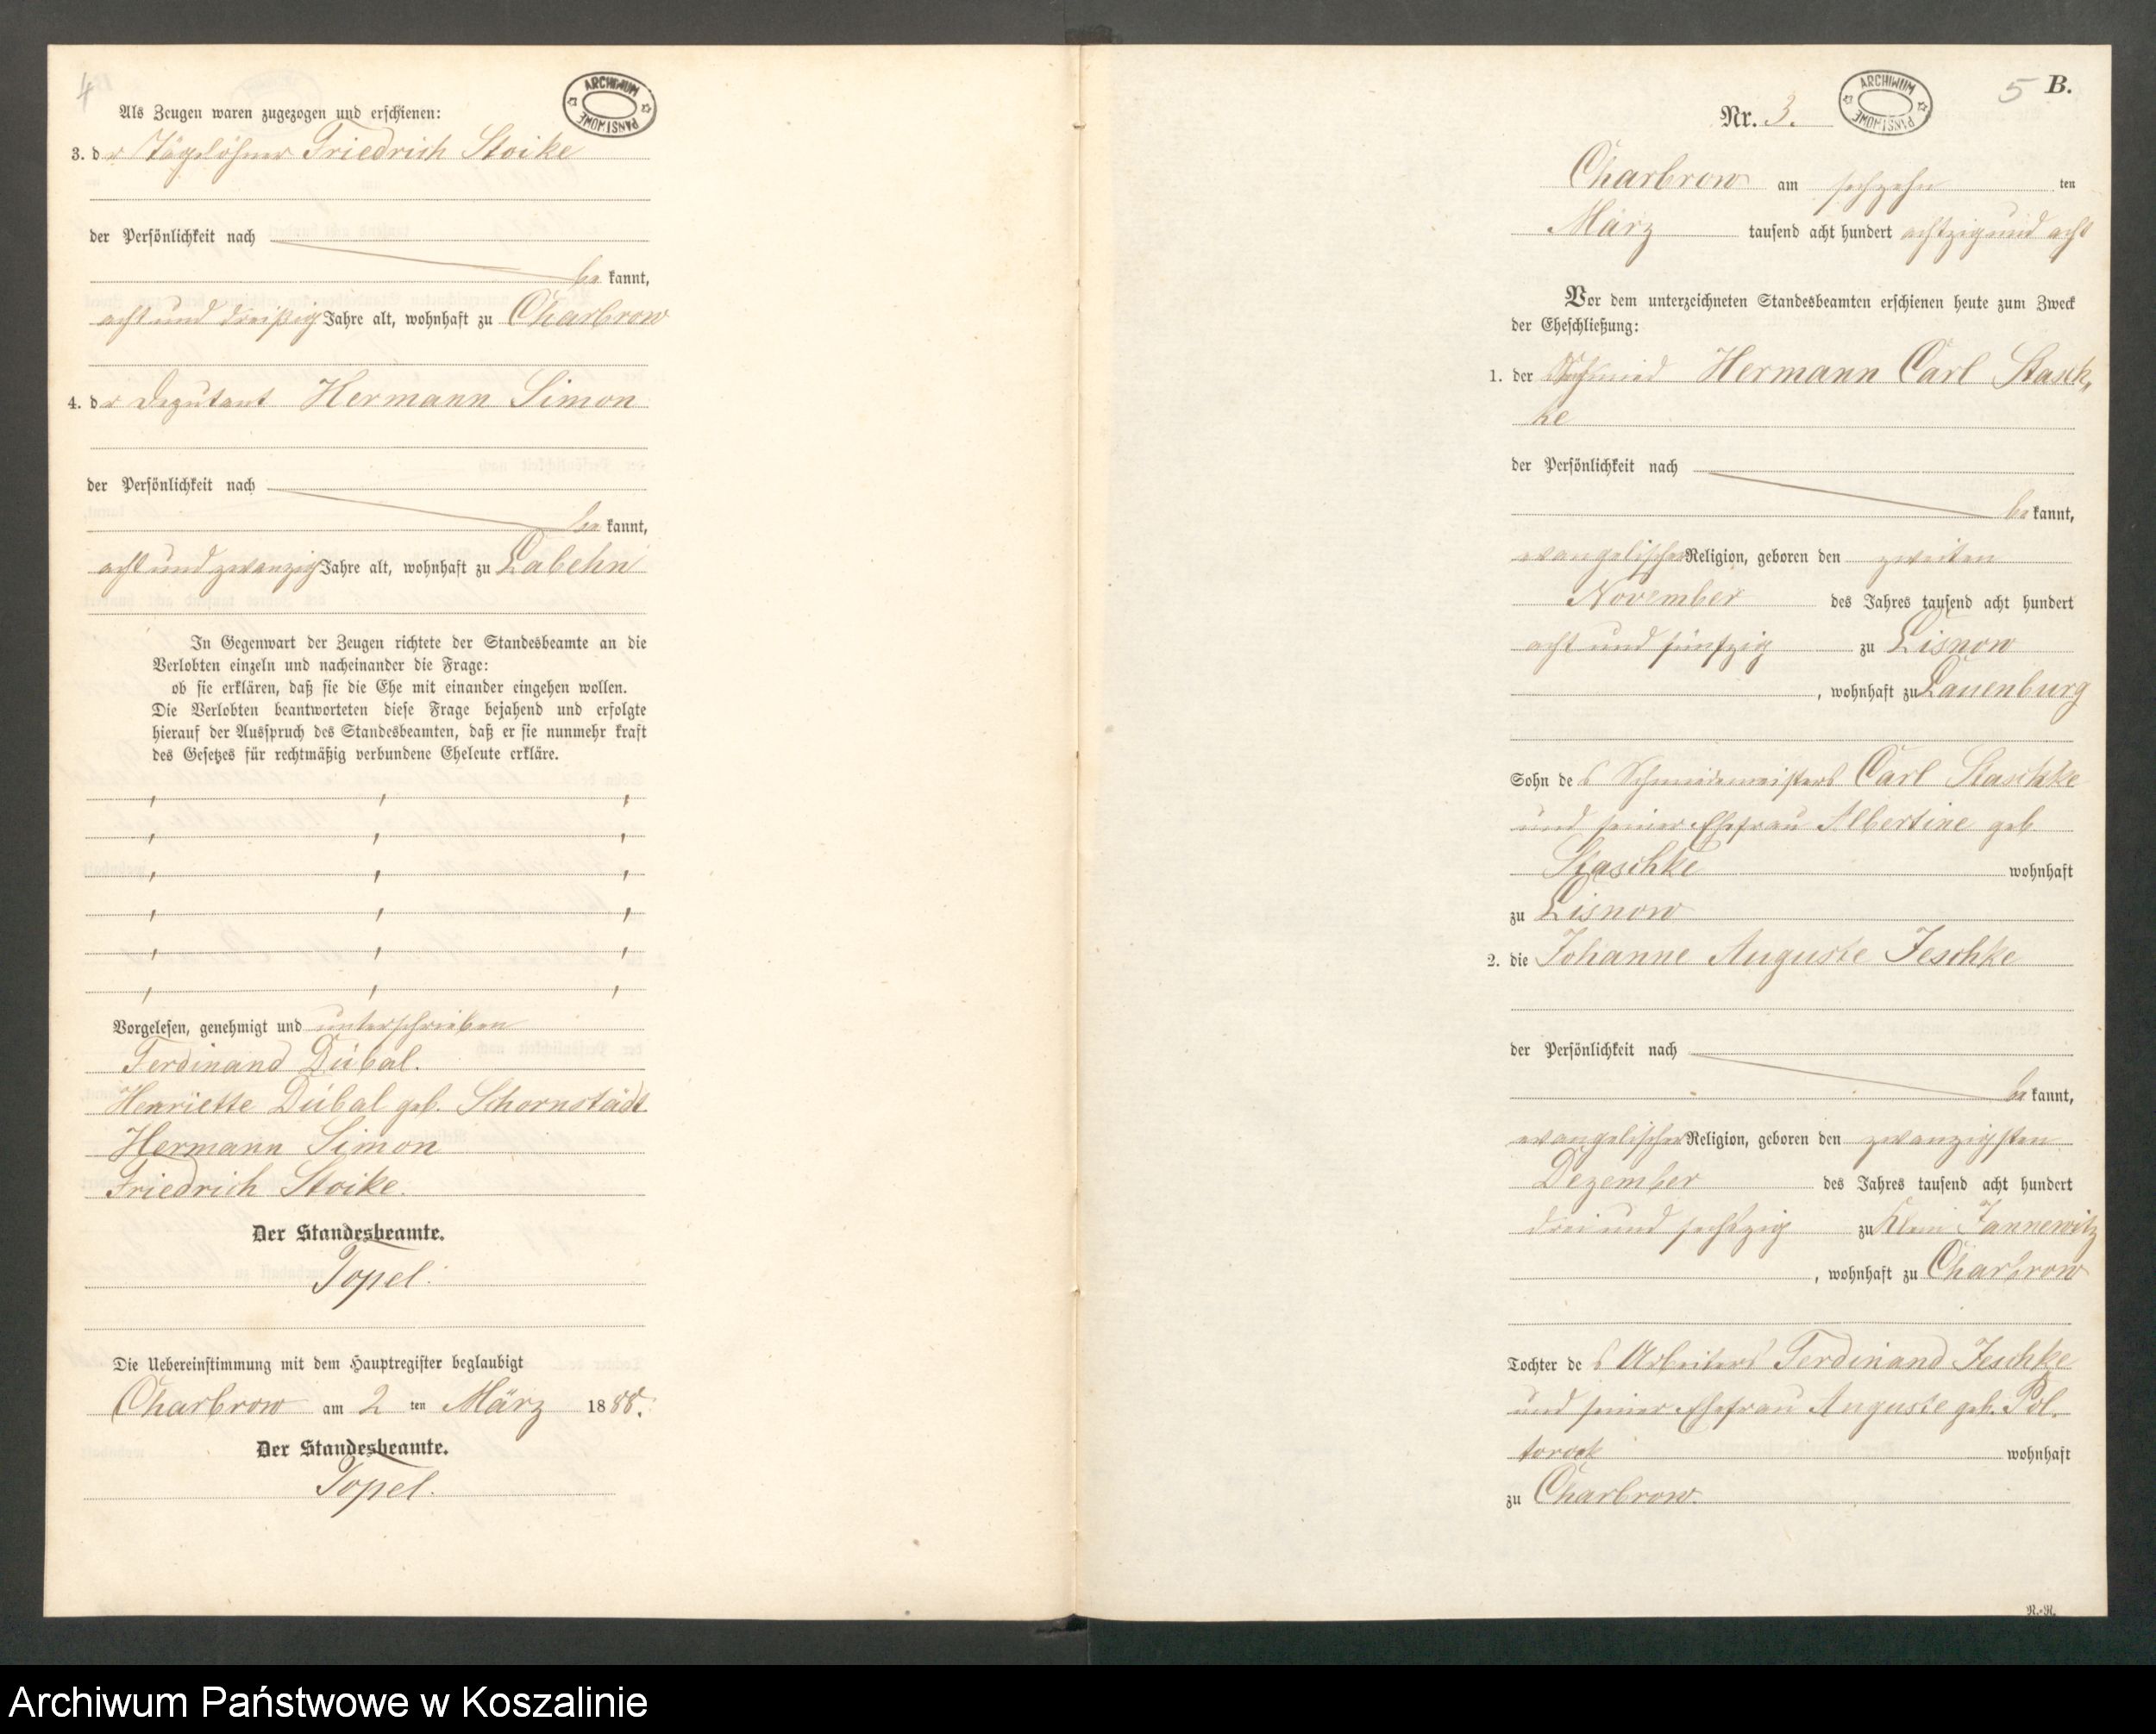 4
ARCHIWUM PAŃSTWOWE
Als Zeugen waren zugezogen und erschienen:
3. der Tagelöhner Friedrich Stoike
der Persönlichkeit nach
be kannt,
acht und dreißig Jahre alt, wohnhaft zu Charbrow
4. der Deputant Hermann Simon
der Persönlichkeit nach
be kannt,
acht und zwanzig Jahre alt, wohnhaft zu Labehn
In Gegenwart der Zeugen richtete der Standesbeamte an die
Verlobten einzeln und nacheinander die Frage:
ob sie erklären, daß sie die Ehe mit einander eingehen wollen.
Die Verlobten beantworteten diese Frage bejahend und erfolgte
hierauf der Ausspruch des Standesbeamten, daß er sie nunmehr kraft
des Gesetzes für rechtmäßig verbundene Eheleute erkläre.
Vorgelesen, genehmigt und unterschrieben
Ferdinand Dübal.
Henriette Dübal geb. Schornstädt
Hermann Simon
Friedrich Stoike.
Der Standesbeamte.
Topel.
Die Uebereinstimmung mit dem Hauptregister beglaubigt
Charbrow am 2 ten März 1888.
Der Standesbeamte.
Topel.
5 B.
ARCHIWUM PAŃSTWOWE
Nr. 3.
Charbrow am sechzehn ten
März tausend acht hundert achtzig und acht
Vor dem unterzeichneten Standesbeamten erschienen heute zum Zweck
der Eheschließung:
1. der Schmied Hermann Carl Stasch-
ke
der Persönlichkeit nach
be kannt,
evangelischer Religion, geboren den zweiten
November des Jahres tausend acht hundert
acht und fünfzig zu Lisnow
, wohnhaft zu Lauenburg
Sohn des Schmiedemeisters Carl Staschke
und seiner Ehefrau Albertine geb.
Staschke wohnhaft
zu Lisnow
2. die Johanne Auguste Jeschke
der Persönlichkeit nach
be kannt,
evangelischer Religion, geboren den zwanzigsten
Dezember des Jahres tausend acht hundert
drei und sechszig zu Klein Jannewitz
, wohnhaft zu Charbrow
Tochter des Arbeiters Ferdinand Jeschke
und seiner Ehefrau Auguste geb. Pol-
torock wohnhaft
zu Charbrow.
R.-R.
Archiwum Państwowe w Koszalinie